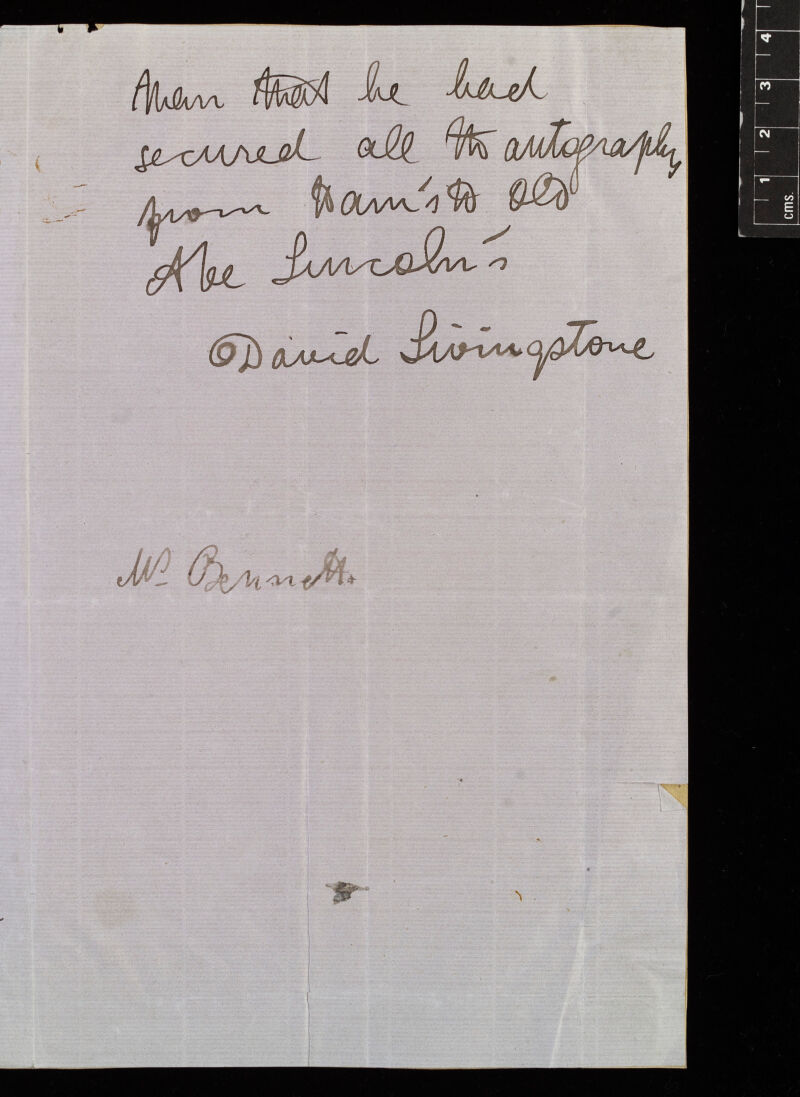 than that he had
secured all the autographs
from Ham's to Old
Abe Lincoln's
David Livingstone
Mr Bennett.
4
3
2
1
cms.